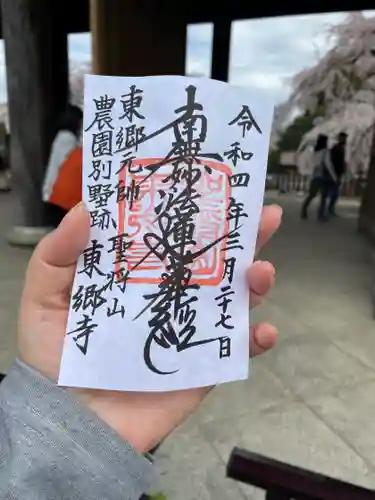 令和四年三月二十七日
南無妙法蓮華経
東郷元帥
農園別墅跡
聖将山
東郷寺